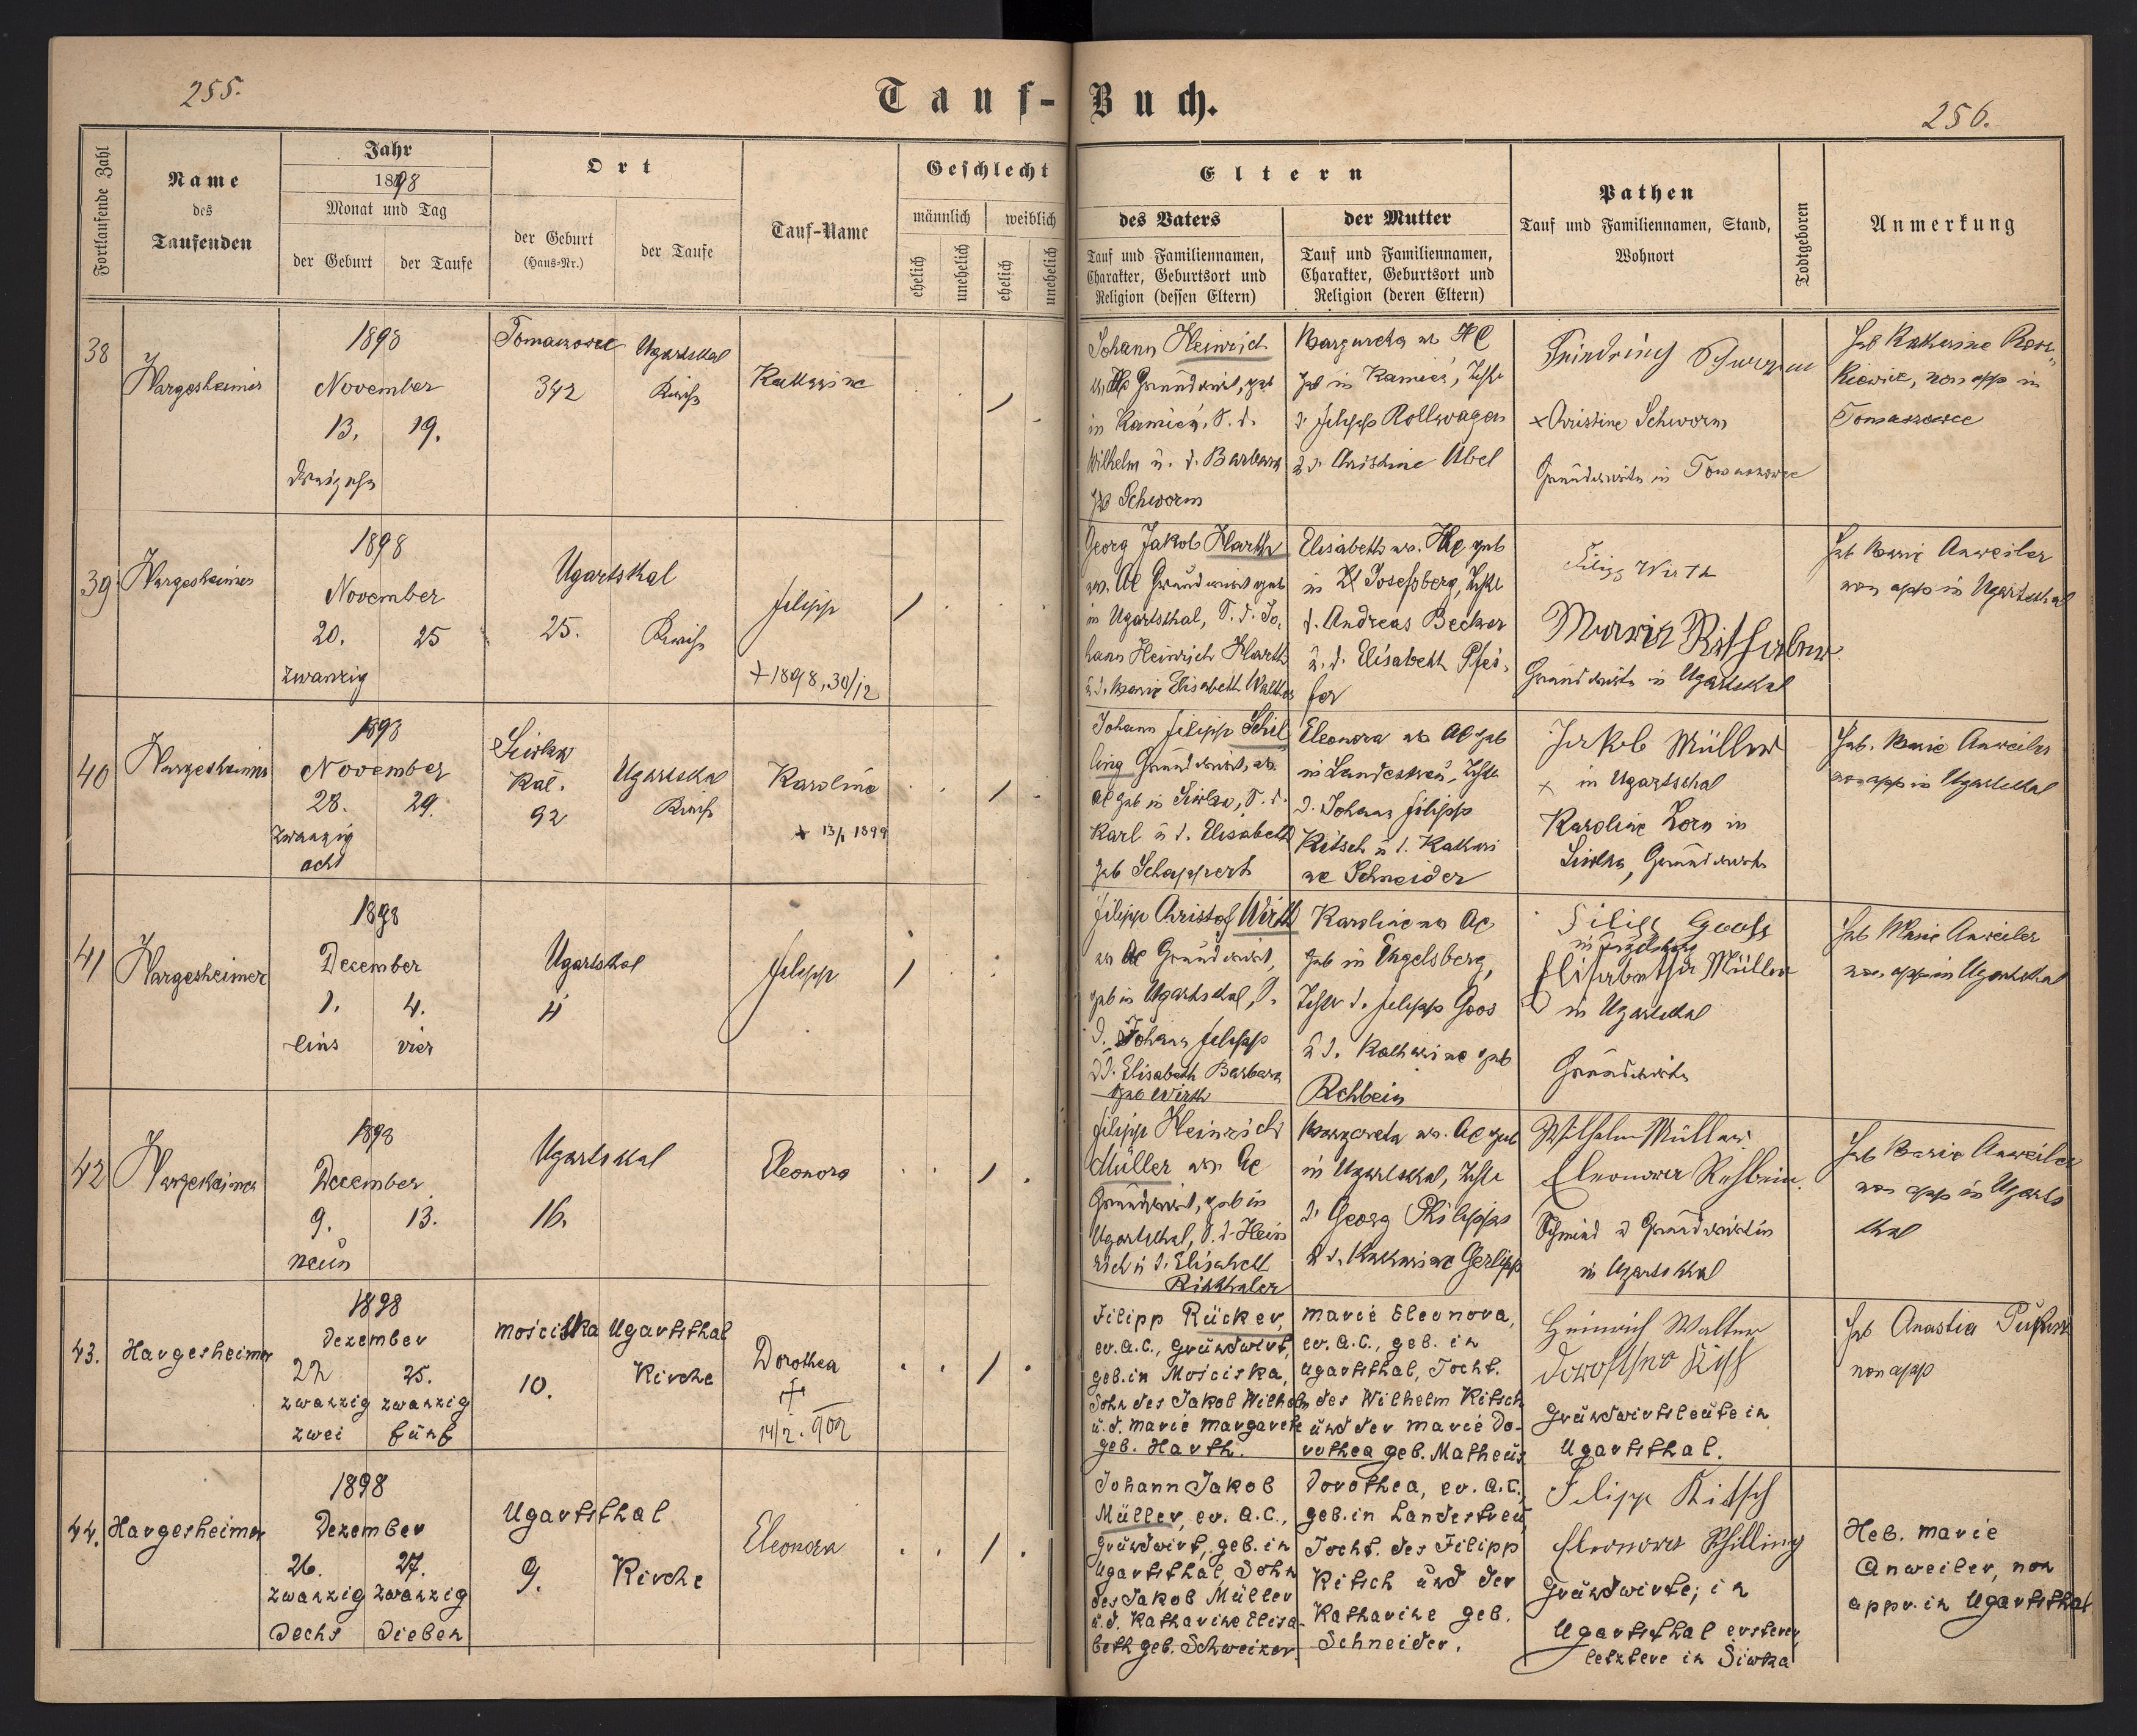 255.
Tauf-Buch.
256.
Fortlaufende Zahl
Name
des
Taufenden
Jahr
1898
Monat und Tag
der Geburt
der Taufe
Ort
der Geburt
(Haus-Nr.)
der Taufe
Tauf-Name
Geschlecht
männlich
weiblich
ehelich
unehelich
ehelich
unehelich
Eltern
des Vaters
Tauf und Familiennamen,
Charakter, Geburtsort und
Religion (dessen Eltern)
der Mutter
Tauf und Familiennamen,
Charakter, Geburtsort und
Religion (deren Eltern)
Pathen
Tauf und Familiennamen, Stand,
Wohnort
Todtgeboren
Anmerkung
38
Hargesheimer
1898
November
13. 19.
dreizehn
Tomaszowce
342
Ugartsthal
Kirche
Katharine
Johann Heinrich
Grundwirt, geb
in Kamień, S. d.
Wilhelm u. d. Barbara
geb Schworm
Margareta ev. HC
geb in Kamień, Tochter
d. Filipp Rollwagen
u d. Christine Übel
Christine Schworm
Grundwirte in Tomaszowce
Heb Katharine
non app in
Tomaszowce
39
Hargesheimer
1898
November
20. 25
zwanzig
Ugartsthal
25. Kirche
Filipp
+ 1898, 30/12
Georg Jakob Harth
ev. AC Grundwirt geb
in Ugartsthal, S. d. Jo-
hann Heinrich Harth
u d. Marie Elisabeth Walter
Elisabeth ev. HC geb
in Josefsberg, Tochter
d. Andreas Becker
u. d. Elisabeth Pfei-
fer
Filipp Wirth
Grundwirte in Ugartsthal
Heb Marie Anweiler
non app in Ugartsthal
40
Hargesheimer
1898
November
28. 29.
zwanzig
acht
Siwka
Kał.
92
Ugartsthal
Kirche
Karoline
+ 13/1 1899
Johann Filipp Schil
ling Grundwirt, ev.
AC geb in Siwka, S. d.
Karl u d. Elisabeth
geb Schappert
Eleonora ev AC geb
in Landestreu, Tochter
d. Johann Filipp
Kitsch u d. Kathari
ne Schneider
Jakob Müller
x in Ugartsthal
Karoline Zorn in
Siwka, Grundwirte
Heb. Marie Anweiler
non app in Ugartsthal
41
Hargesheimer
1898
Dezember
1. 4.
eins vier
Ugartsthal
4
Filipp
Filipp Christof Wirth
ev AC Grundwirt,
geb in Ugartsthal, S.
d. Johann Filipp
u d. Elisabeth Barbara
geb Wirth
Karoline ev AC
geb in Engelsberg,
Tochter d. Filipp Goos
u d. Katharine geb
Rehbein
Filipp Goos
in Engelsberg
Elisabetha Müller
in Ugartsthal
Grundwirte
Heb Marie Anweiler
non app in Ugartsthal
42
Hargesheimer
1898
Dezember
9. 13.
neun
Ugartsthal
16.
Eleonora
Filipp Heinrich
Müller ev AC
Grundwirt, geb in
Ugartsthal, S. d. Hein
rich u d. Elisabeth
Ritthaler
Margareta ev. AC geb
in Ugartsthal, Tochter
d. Georg Philipps
u d. Katharine Gerlipp
Wilhelm Müller
Eleonora Rehbein.
Schmied u Grundwirtin
in Ugartsthal
Heb Marie Anweiler
non app in Ugarts
thal
43.
Hargesheimer
1898
Dezember
22 25.
zwanzig zwanzig
zwei fünf
Mościska
10.
Ugartsthal
Kirche
Dorothea
+
14/2. 902
Filipp Rücker,
ev. A.C., Grundwirt,
geb. in Mościska,
Sohn des Jakob Wilhelm
u. d. Marie Margarete
geb. Harth.
Marie Eleonora,
ev. A.C., geb. in
Ugartsthal, Tocht.
des Wilhelm Kitsch
und der Marie Do-
rothea geb. Matheus
Heinrich Walter
Grundwirtsleute in
Ugartsthal.
Heb Anastia
non app
44.
Hargesheimer
1898
Dezember
26. 27.
zwanzig zwanzig
sechs sieben
Ugartsthal
9. Kirche
Eleonora
Johann Jakob
Müller, ev. A.C.,
Grundwirt, geb. in
Ugartsthal, Sohn
des Jakob Müller
u. d. Katharine Elisa-
beth geb. Schweizer.
Dorothea, ev. A.C.,
geb. in Landestreu,
Tocht. des Filipp
Kitsch und der
Katharine geb.
Schneider.
Filipp Kitsch
Eleonora Schilling
Grundwirte; in
Ugartsthal ersterer,
letztere in Siwka
Heb. Marie
Anweiler, non
appr. in Ugartsthal